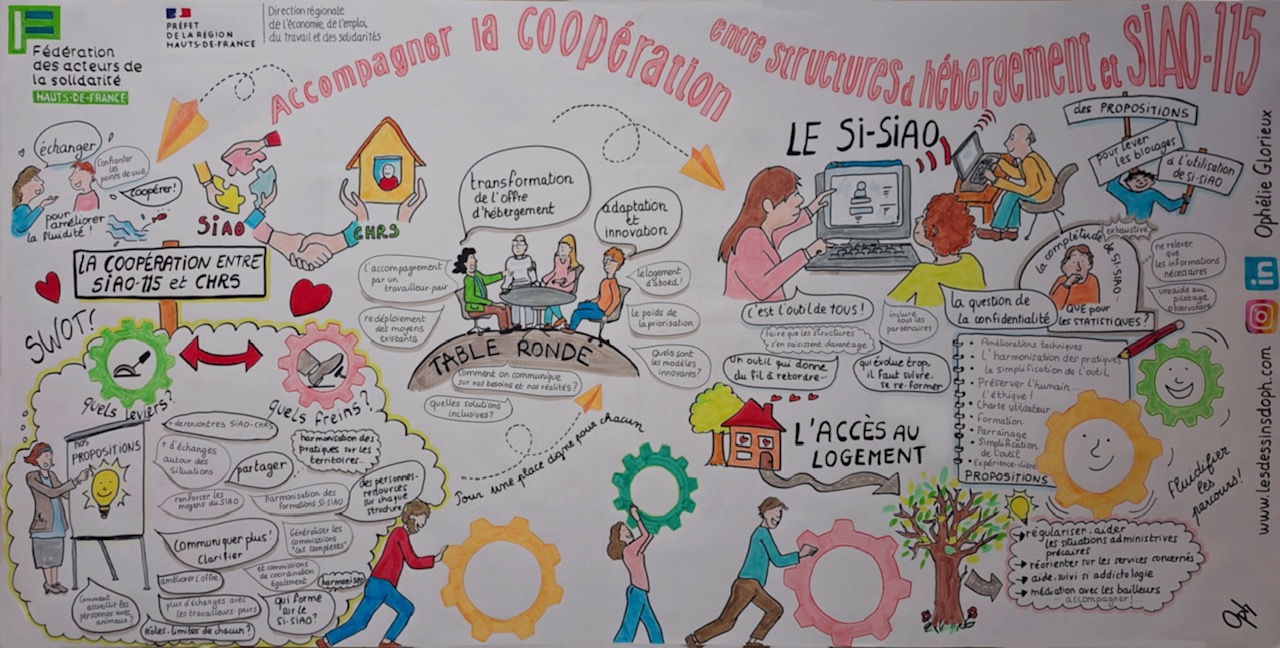 Fédération
des acteurs de
la solidarité
HAUTS-DE-FRANCE
PRÉFET
DE LA RÉGION
HAUTS-DE-FRANCE
Direction régionale
de l'économie, de l'emploi,
du travail et des solidarités
Accompagner la coopération
entre structures d'hébergement et SiAO-115
échanger
Confronter
les
points de vue
coopérer!
pour améliorer
la fluidité!
SiAO
CHRS
LA COOPÉRATION ENTRE
SiAO-115 et CHRS
SWOT!
quels leviers?
quels freins?
nos
PROPOSITIONS
+ de rencontres SiAO-CHRS
+ d'échanges
autour des
situations
partager
harmonisation des
pratiques sur les
territoires...
des personnes-
ressources
sur chaque
structure
renforcer les
moyens du SiAO
Harmonisation des
formations Si-SiAO
Communiquer plus!
Clarifier
Généraliser les
commissions
"cas complexes"
améliorer l'offre
et commissions
de coordination
également
harmoniser
Comment
accueillir les
personnes avec
animaux?
plus d'échanges avec
les travailleurs-pairs
qui forme
sur le
Si-SiAO?
Rôles-limites de chacun?
transformation
de l'offre
d'hébergement
adaptation
et
innovation
l'accompagnement
par un
travailleur-pair
redéploiement
des moyens
existants
le logement
d'abord!
le poids de
la priorisation
Quels sont
les modèles
innovants?
TABLE RONDE
Comment on communique
sur nos besoins et nos réalités?
quelles solutions
inclusives?
Pour une place digne pour chacun
LE Si-SiAO
des PROPOSITIONS
pour lever
les blocages
à l'utilisation
de Si-SiAO
c'est l'outil de tous!
faire que les structures
s'en saisissent davantage
inclure
tous les
partenaires
un outil qui donne
du fil à retordre...
qui évolue trop,
il faut suivre.
se re-former
la question de
la confidentialité
la complétude de Si-SiAO...
exhaustive
QUE pour
les STATISTIQUES?
ne relever
que
les informations
nécessaires
une aide au
pilotage
observatoire
Améliorations techniques
L'harmonisation des pratiques
la simplification de l'outil
Préserver l'humain...
l'éthique!
Charte utilisateur
Formation
Parrainage
Simplification
de l'outil
Expérience-client
PROPOSITIONS
L'ACCÈS AU
LOGEMENT
Fluidifier
les
parcours!
régulariser-aider
les situations administratives
précaires
réorienter sur les services concernés
aide-suivi si addictologie
médiation avec les bailleurs
... accompagner!
www.lesdessinsdoph.com
in
Ophélie Glorieux